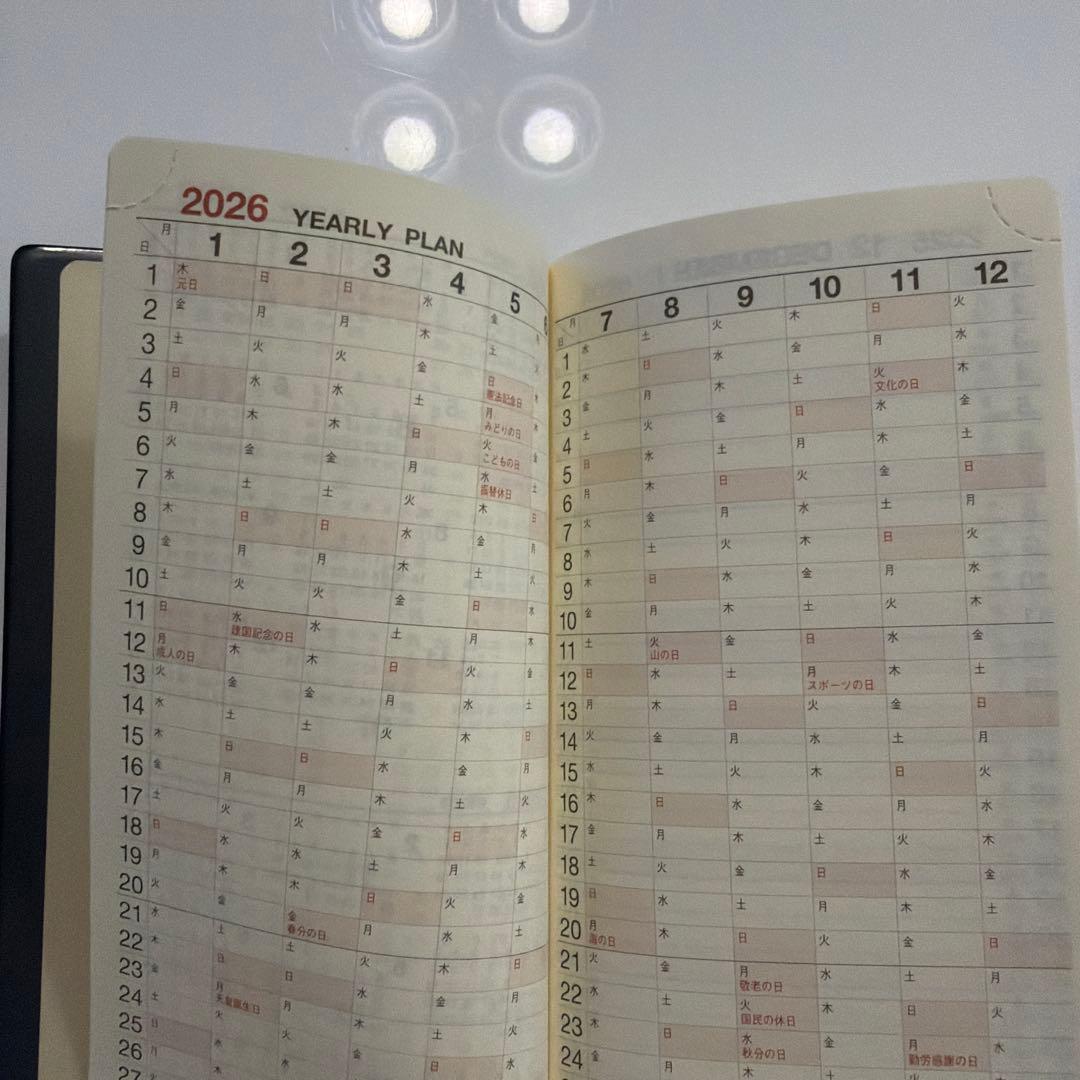 2026 YEARLY PLAN
月 日 1 2 3 4 5
1 木 日 日 水 金 月
元日
2 金 月 月 木 土 火
3 土 火 火 金 日 水
憲法記念日
4 日 水 水 土 月 木
みどりの日
5 月 木 木 日 火 金
こどもの日
6 火 金 金 月 水 土
振替休日
7 水 土 土 火 木 日
8 木 日 日 水 金 月
9 金 月 月 木 土 火
10 土 火 火 金 日 水
11 日 水 水 土 月 木
建国記念の日
12 月 木 木 日 火 金
成人の日
13 火 金 金 月 水 土
14 水 土 土 火 木 日
15 木 日 日 水 金 月
16 金 月 月 木 土 火
17 土 火 火 金 日 水
18 日 水 水 土 月 木
19 月 木 木 日 火 金
20 火 金 金 月 水 土
春分の日
21 水 土 土 火 木 日
22 木 日 日 水 金 月
23 金 月 月 木 土 火
天皇誕生日
24 土 火 火 金 日 水
25 日 水 水 土
26 月 木 木 日
27
月 日 7 8 9 10 11 12
1 水 土 火 木 日 火
2 木 日 水 金 月 水
3 金 月 木 土 火 木
文化の日
4 土 火 金 日 水 金
5 日 水 土 月 木 土
6 月 木 日 火 金 日
7 火 金 月 水 土 月
8 水 土 火 木 日 火
9 木 日 水 金 月 水
10 金 月 木 土 火 木
11 土 火 金 日 水 金
山の日
12 日 水 土 月 木 土
スポーツの日
13 月 木 日 火 金 日
14 火 金 月 水 土 月
15 水 土 火 木 日 火
16 木 日 水 金 月 水
17 金 月 木 土 火 木
18 土 火 金 日 水 金
19 日 水 土 月 木 土
20 月 木 日 火 金 日
海の日
21 火 金 月 水 土 月
敬老の日
22 水 土 火 木 日 火
国民の休日
23 木 日 水 金 月 水
秋分の日 勤労感謝の日
24 金 月 木 土 火 木